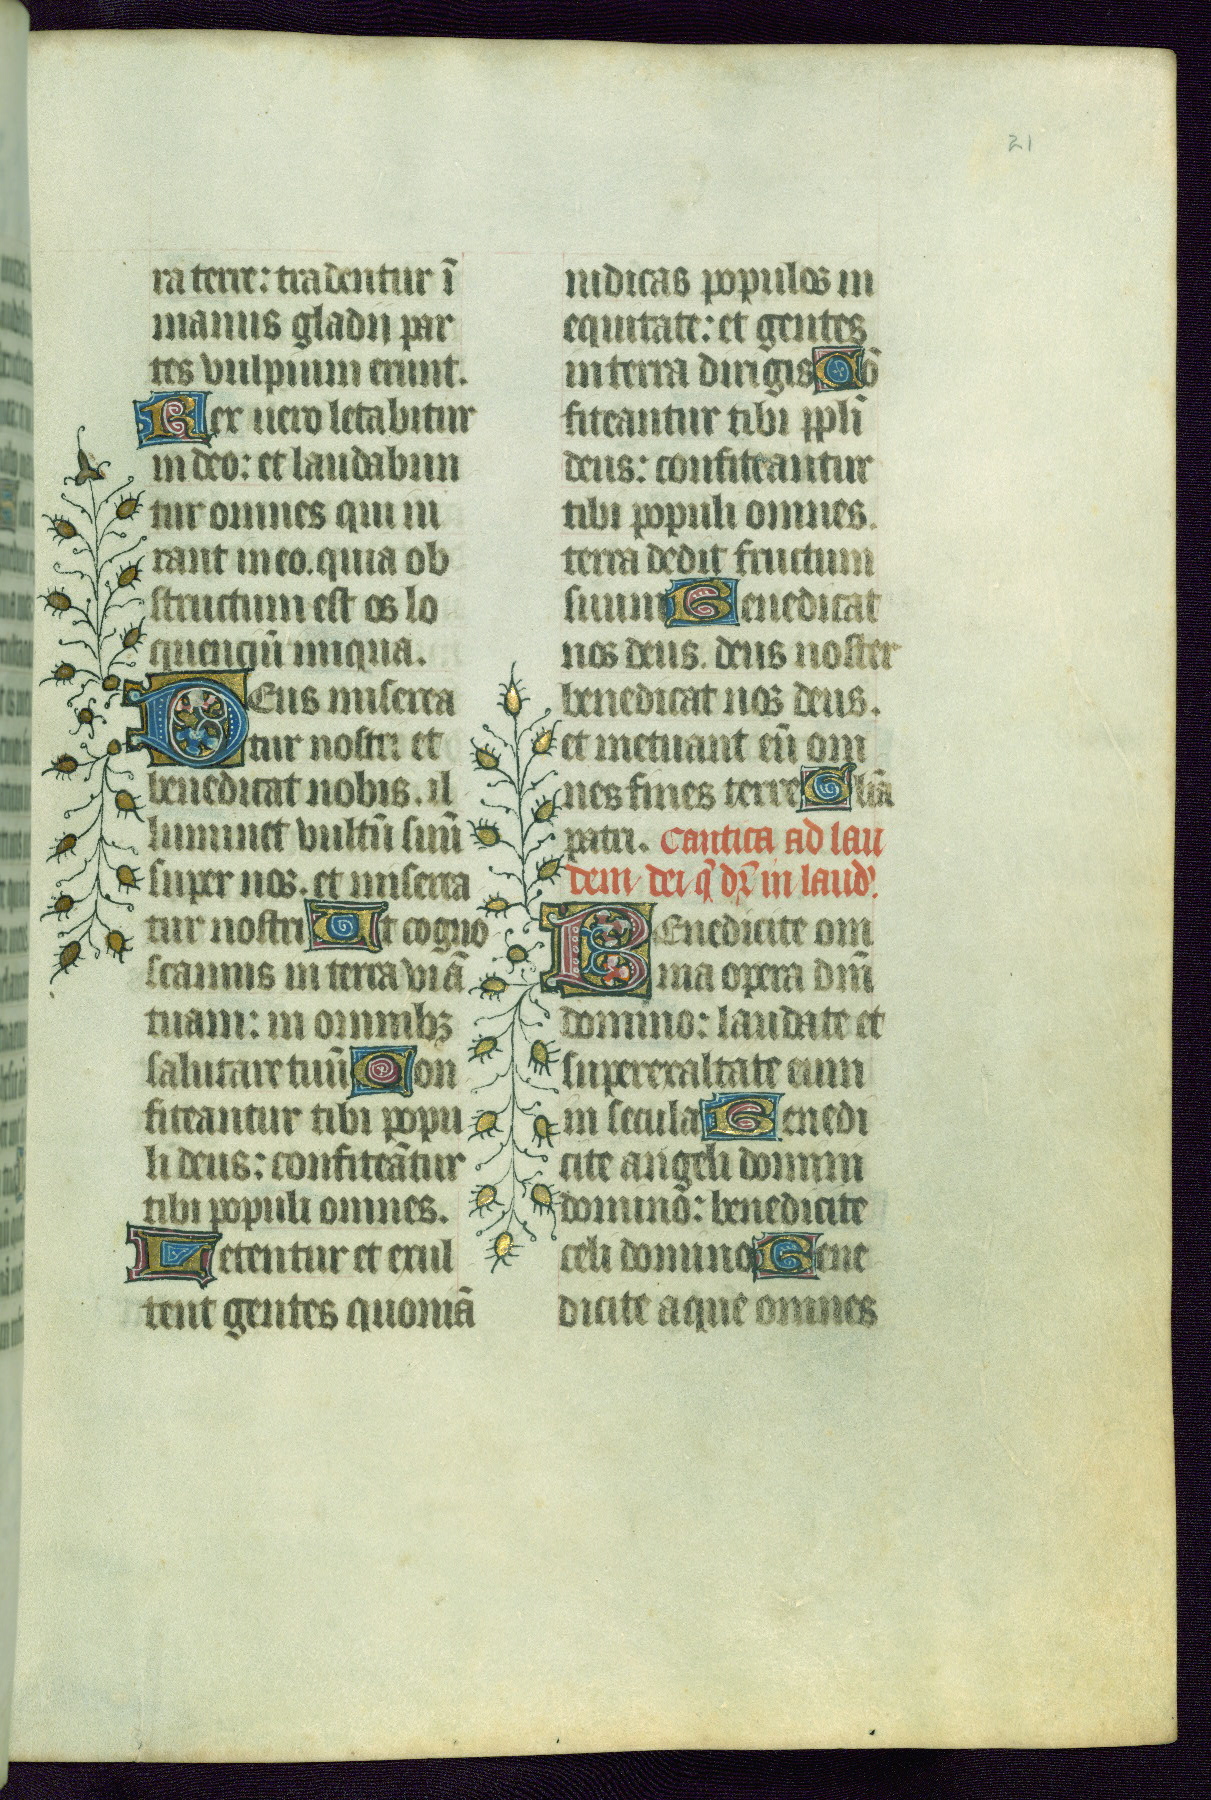 21
ra terre: tradentur ī
manus gladij par
tes vulpium erunt.
Rex uero letabitur
in deo: et laudabun
tur omnes qui iu
rant in eo. quia ob
structum est os lo
quenciū iniqua.
DEus miserea
tur nostri et
benedicat nobis. il
luminet vultū suū
super nos. et miserea
tur nostri Ut cogno
scamus in terra viā
tuam: in omnibꝫ
salutare tuū Con
fiteantur tibi popu
li deus: confiteātur
tibi populi omnes.
Letentur et exul
tent gentes quoniā
iudicas populos in
equitate: et gentes
in terra dirigis Cō
fiteantur tibi ppli̅
deus: confiteantur
tibi populi omnes.
terra dedit fructum
suum Benedicat
nos deus. deus noster
benedicat nos deus.
et metuant eū om
nes fines terre Gliā
patri. Cantica ad lau
dem dei q̄ dr̄ in laud'.
BEnedicite om
nia opera dn̄i
domino: laudate et
superexaltate eum
in secula Benedi
cite angeli domini
domino: benedicite
celi domino Bene
dicite aque omnes